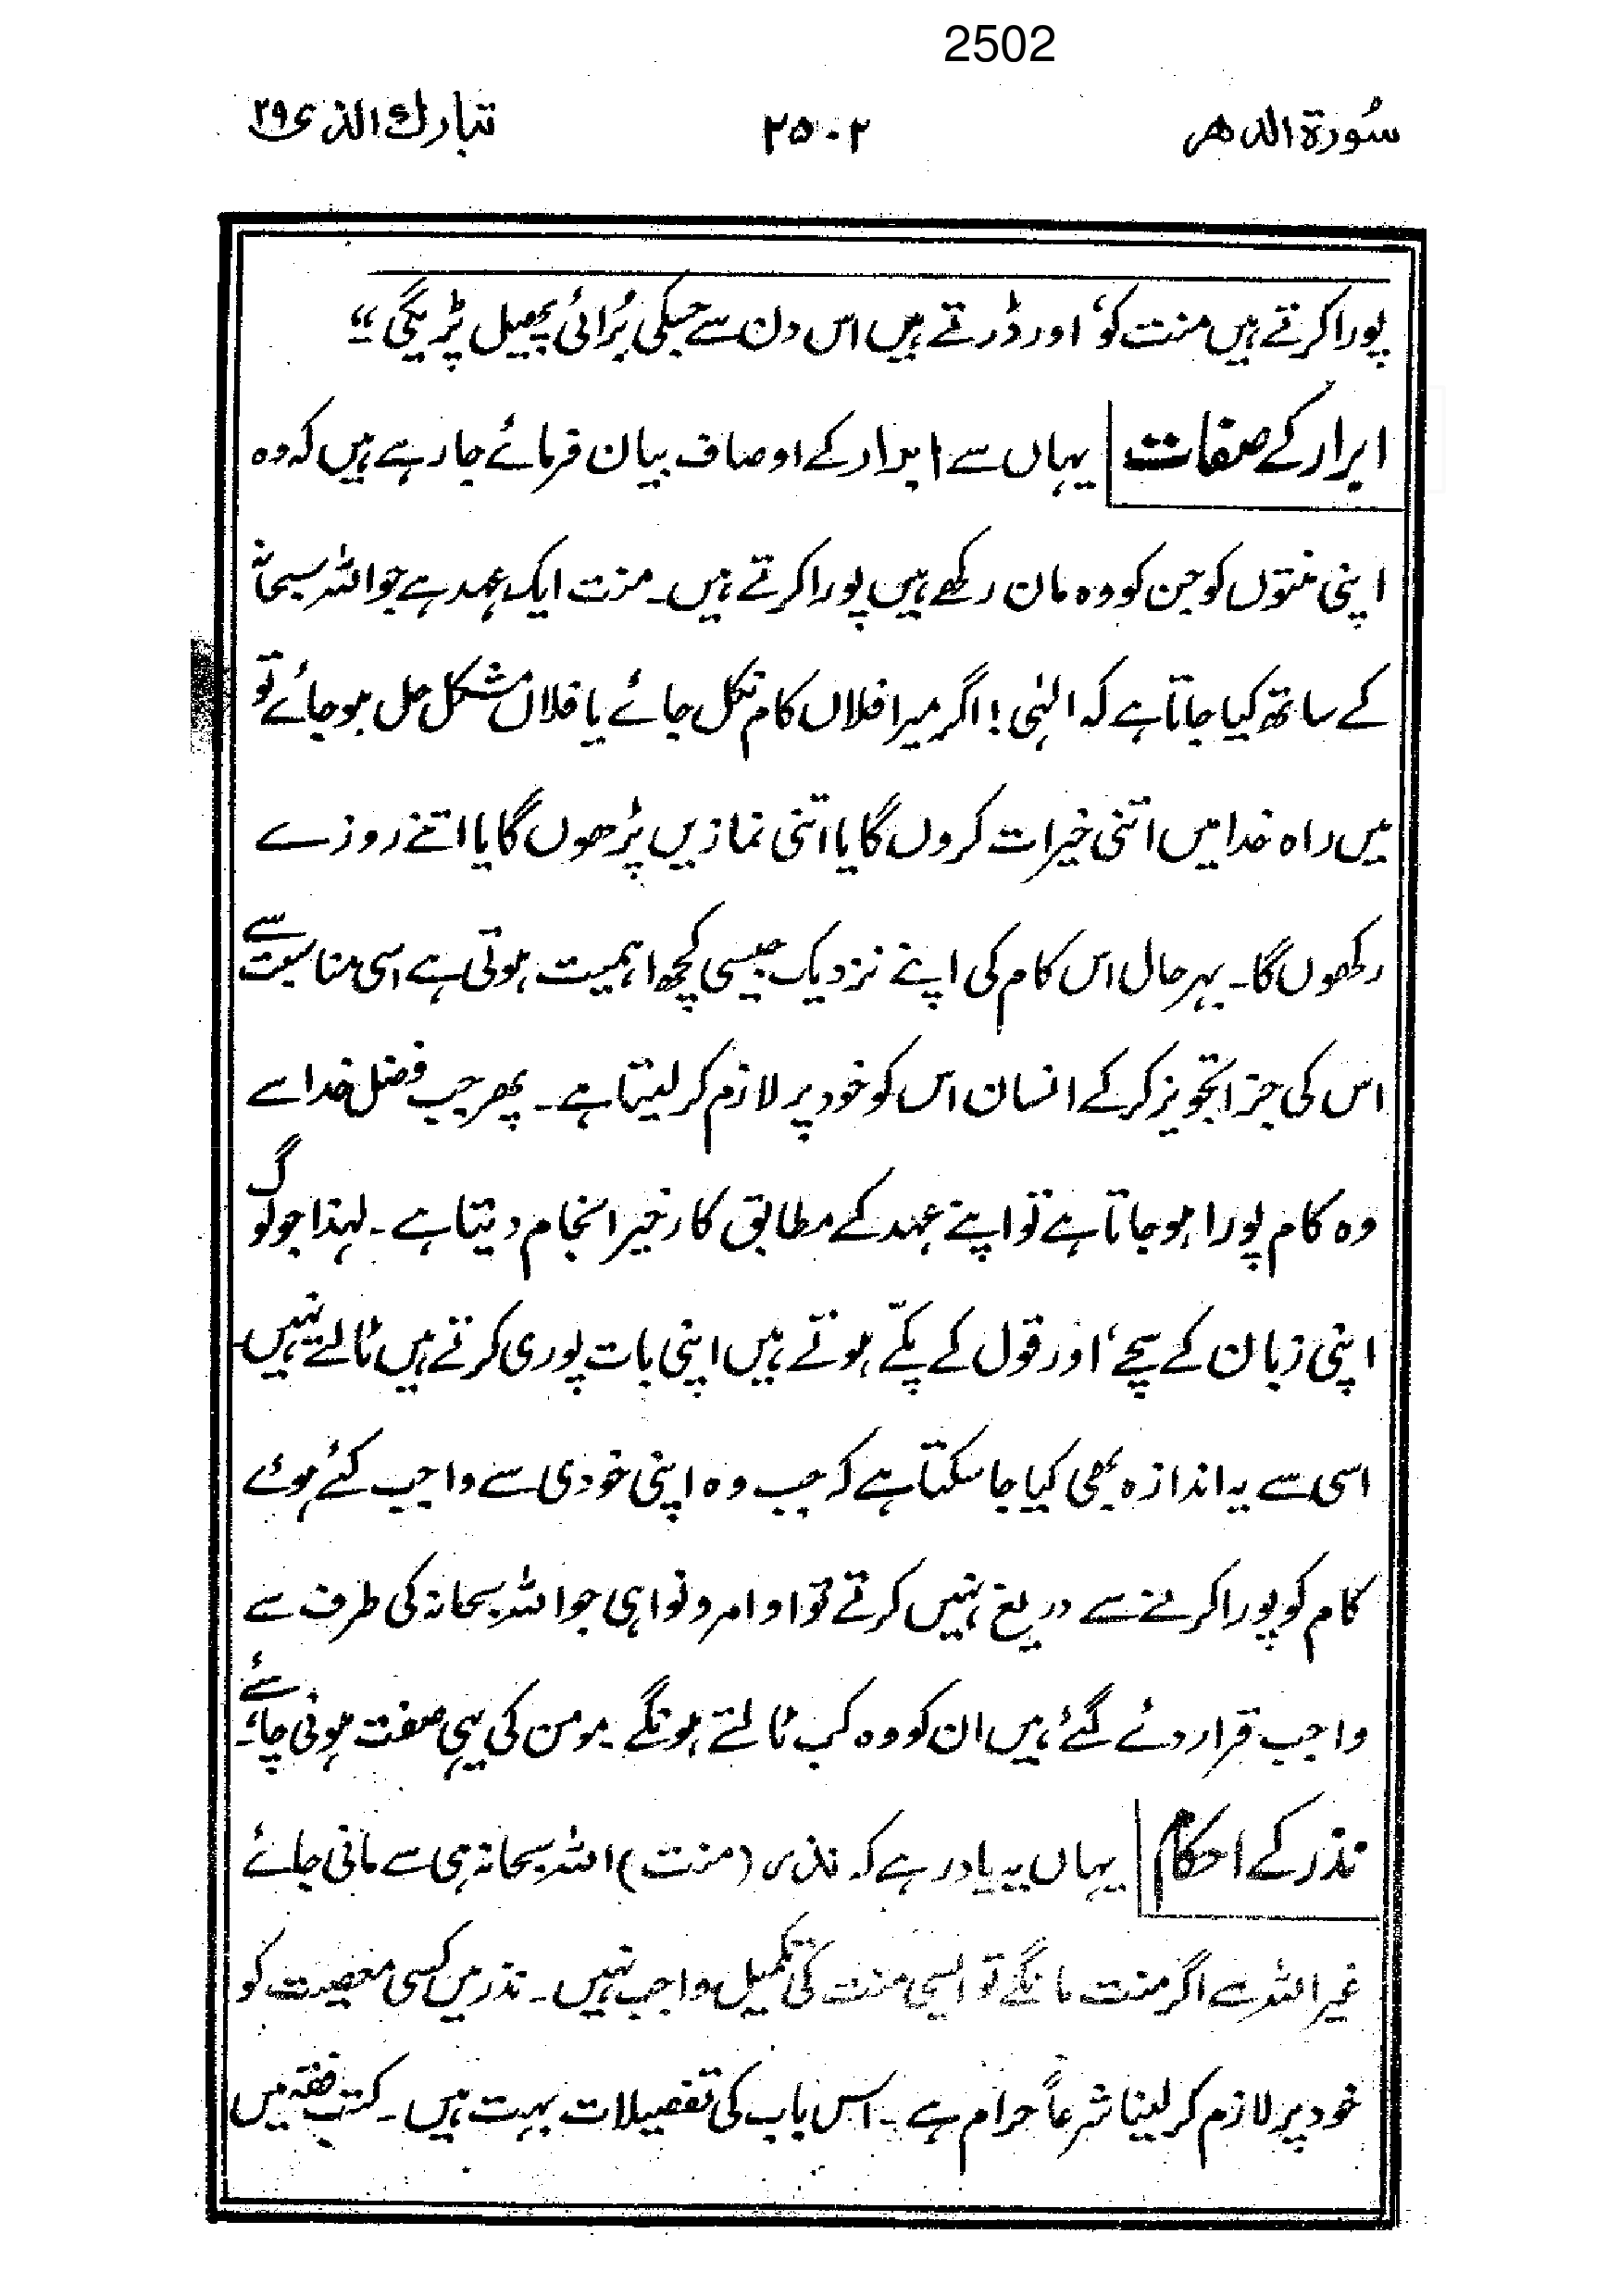 2502
سُورۃ الدھر ۲۵۰۲ تبارك الذی ۲۹
پورا کرتے ہیں منت کو، اور ڈرتے ہیں اس دن سے جسکی بُرائی پھیل پڑیگی“
ابرار کے صفات یہاں سے ابرار کے اوصاف بیان فرمائے جارہے ہیں کہ وہ
اپنی منتوں کو جن کو وہ مان رکھے ہیں پورا کرتے ہیں۔ منت ایک عہد ہے جو اللہ سبحانہٗ
کے ساتھ کیا جاتا ہے کہ الٰہی! اگر میرا فلاں کام نکل جائے یا فلاں مشکل حل ہوجائے تو
میں راہ خدا میں اتنی خیرات کروں گا یا اتنی نمازیں پڑھوں گا یا اتنے روزے
رکھوں گا۔ بہرحال اس کام کی اپنے نزدیک جیسی کچھ اہمیت ہوتی ہے اسی مناسبت سے
اس کی جزا تجویز کرکے انسان اس کو خود پر لازم کرلیتا ہے۔ پھر جب فضل خدا سے
وہ کام پورا ہوجاتا ہے تو اپنے عہد کے مطابق کارخیر انجام دیتا ہے۔ لہذا جو لوگ
اپنی زبان کے سچے، اور قول کے پکّے ہوتے ہیں اپنی بات پوری کرتے ہیں ٹالتے نہیں۔
اسی سے یہ اندازہ بھی کیا جاسکتا ہے کہ جب وہ اپنی خودی سے واجب کئے ہوئے
کام کو پورا کرنے سے دریغ نہیں کرتے تو اوامر و نواہی جو اللہ سبحانہ کی طرف سے
واجب قرار دئے گئے ہیں ان کو وہ کب ٹالتے ہونگے۔ مومن کی یہی صفت ہونی چاہئے۔
نذر کے احکام یہاں یہ یاد رہے کہ نذر (منت) اللہ سبحانہ ہی سے مانی جائے
غیر اللہ سے اگر منت مانگے تو ایسی منت کی تکمیل واجب نہیں۔ نذر میں کسی معصیت کو
خود پر لازم کرلینا شرعاً حرام ہے۔ اس باب کی تفصیلات بہت ہیں۔ کتب فقہ میں